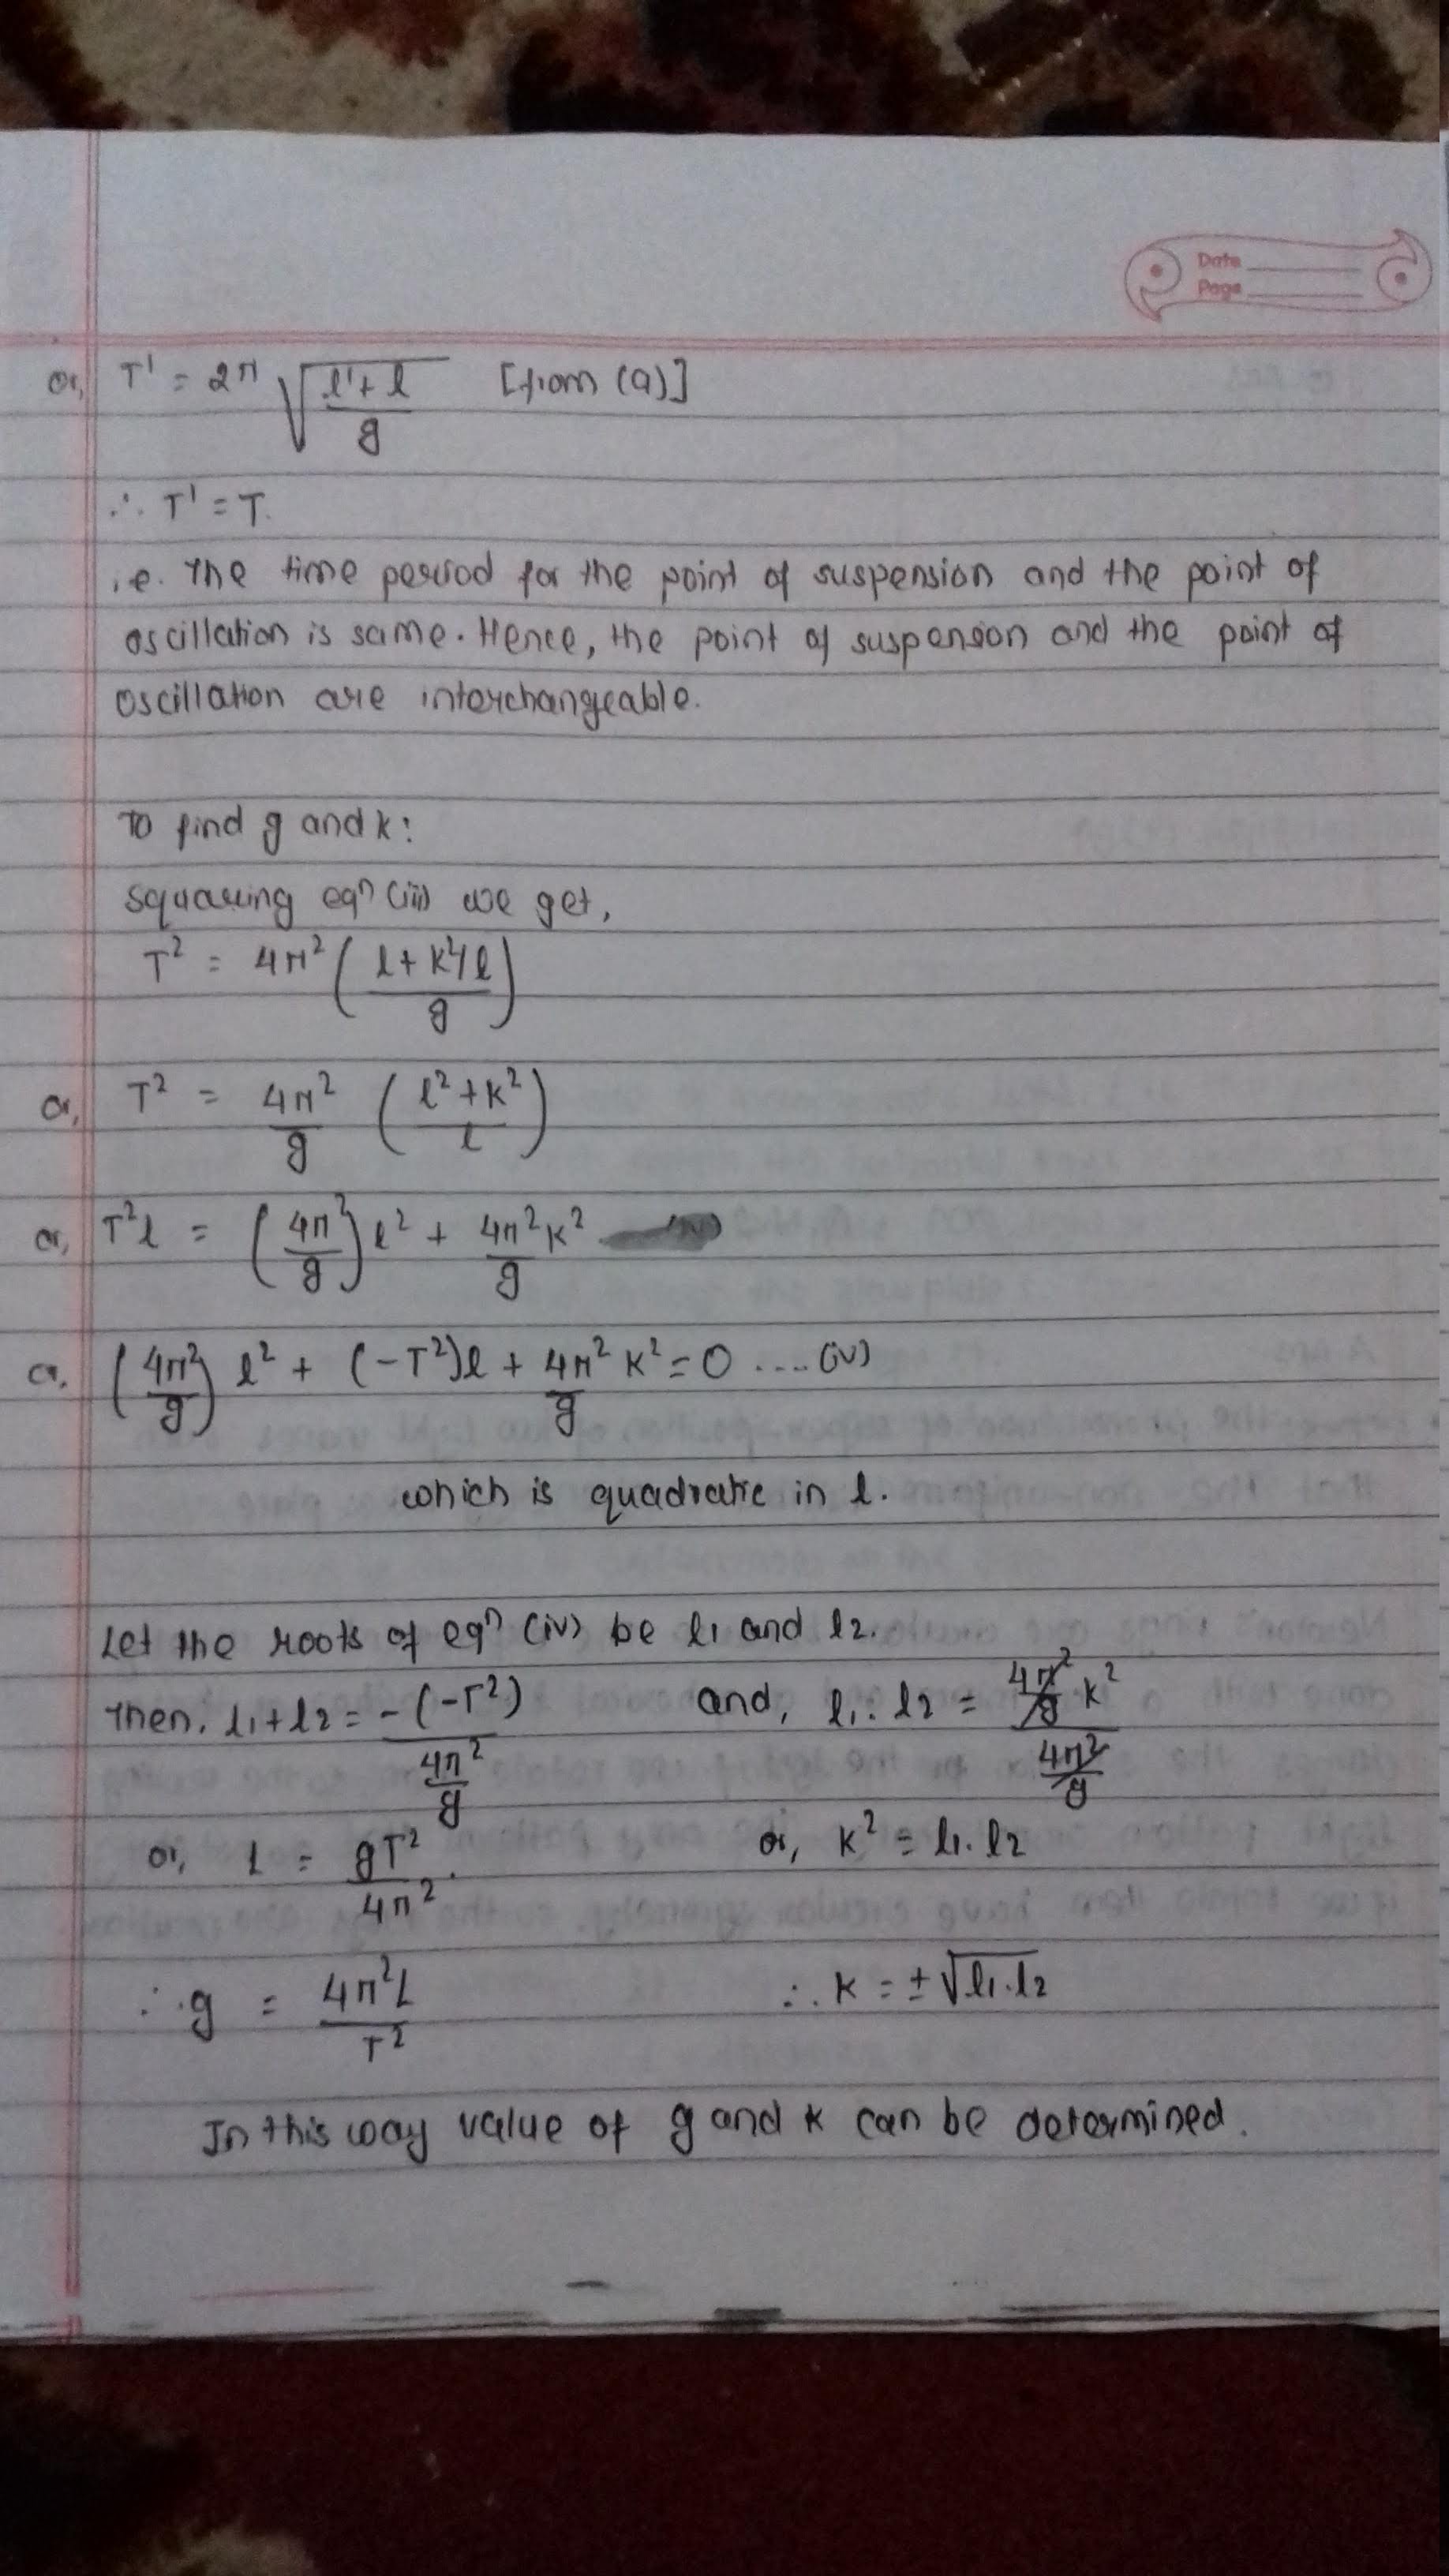 Date
Page
or, T' = 2π √((l'+l)/g) [from (a)]
∴ T' = T.
i.e. The time period for the point of suspension and the point of
oscillation is same. Hence, the point of suspension and the point of
oscillation are interchangeable.
To find g and k:
squaring eqⁿ (iii) we get,
T² = 4π² ((l + k²/l)/g)
or, T² = 4π²/g ((l² + k²)/l)
or, T²l = (4π²/g) l² + 4π²k²/g
or, (4π²/g) l² + (-T²)l + 4π²/g k² = 0 .... (iv)
which is quadratic in l.
Let the roots of eqⁿ (iv) be l₁ and l₂.
Then, l₁ + l₂ = -(-T²)/(4π²/g) and, l₁ . l₂ = (4π²/g k²)/(4π²/g)
or, L = gT²/4π². or, k² = l₁. l₂
∴ g = 4π²L/T² ∴ k = ±√(l₁.l₂)
In this way value of g and k can be determined.